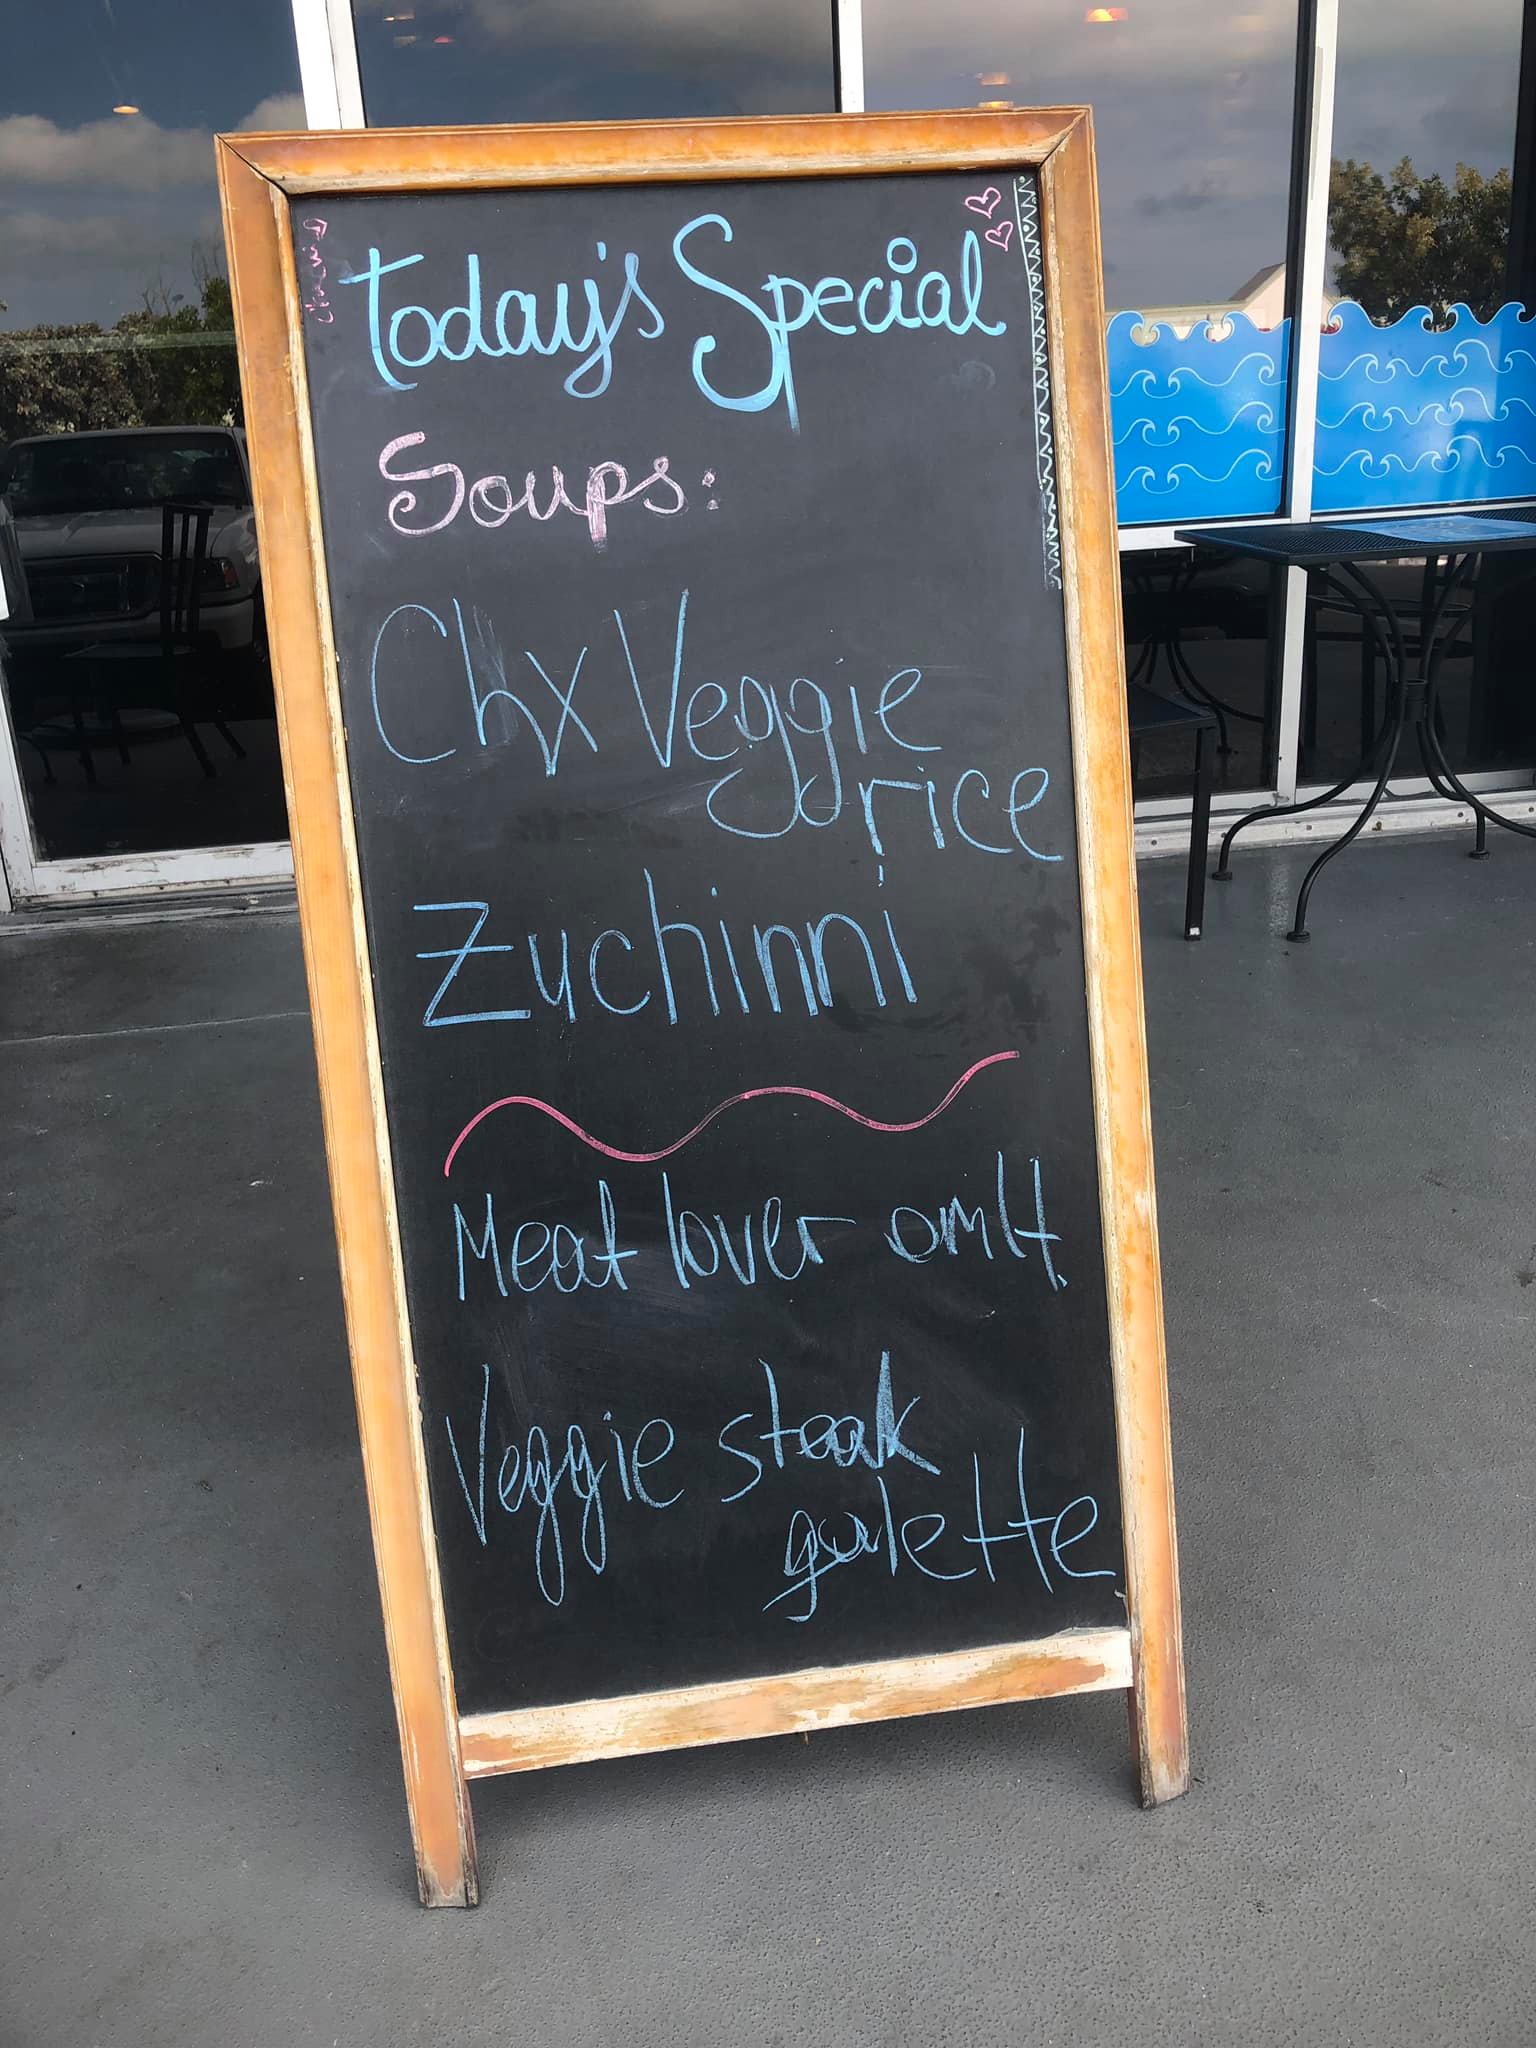 Today's Special
Soups:
Chx Veggie
rice
Zuchinni
Meat lover omlt.
Veggie steak
galette